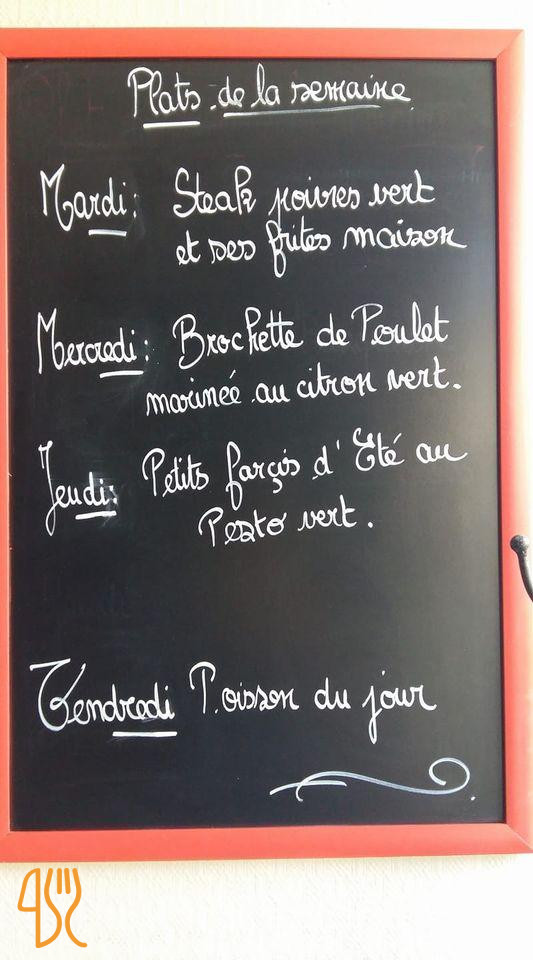 Plats de la semaine
Mardi: Steak poivres vert
et ses frites maison
Mercredi: Brochette de Poulet
marinée au citron vert.
Jeudi: Petits farçis d'Eté au
Pesto vert.
Vendredi Poisson du jour